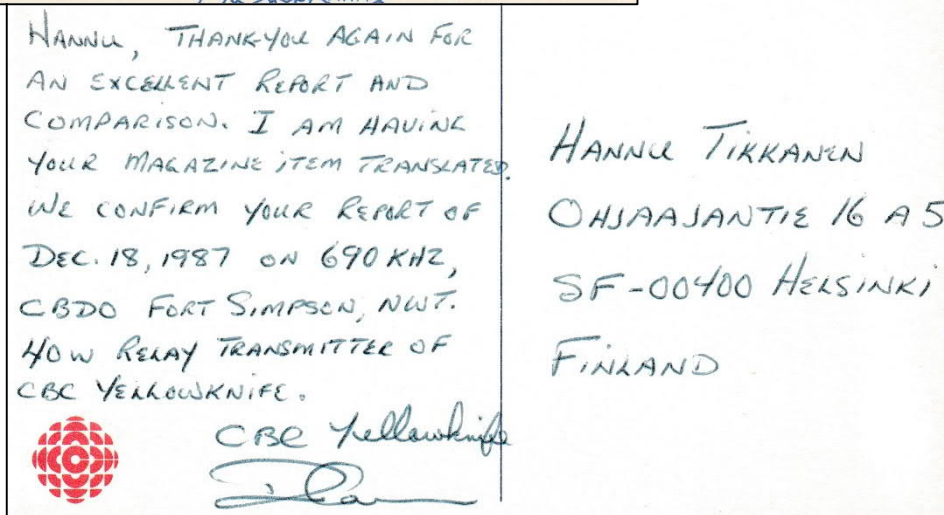 HANNU, THANK-YOU AGAIN FOR
AN EXCELLENT REPORT AND
COMPARISON. I AM HAVING
YOUR MAGAZINE ITEM TRANSLATED.
WE CONFIRM YOUR REPORT OF
DEC. 18, 1987 ON 690 KHZ,
CBDO FORT SIMPSON, NWT.
40W RELAY TRANSMITTER OF
CBC YELLOWKNIFE.
CBC Yellowknife
HANNU TIKKANEN
OHJAAJANTIE 16 A 5
SF-00400 HELSINKI
FINLAND